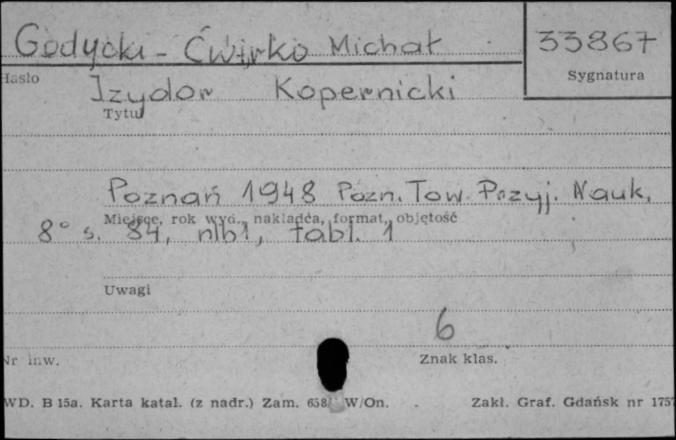 Godycki - Ćwirko Michał 33867
Hasło Sygnatura
Izydor Kopernicki
Tytuł
Poznań 1948 Pozn. Tow. Przyj. Nauk,
Miejsce, rok wyd., nakładca, format, objętość
8° s. 84, nlb1, tabl. 1
Uwagi
6
Nr inw. Znak klas.
WD. B 15a. Karta katal. (z nadr.) Zam. 658/ W/On. Zakł. Graf. Gdańsk nr 1757